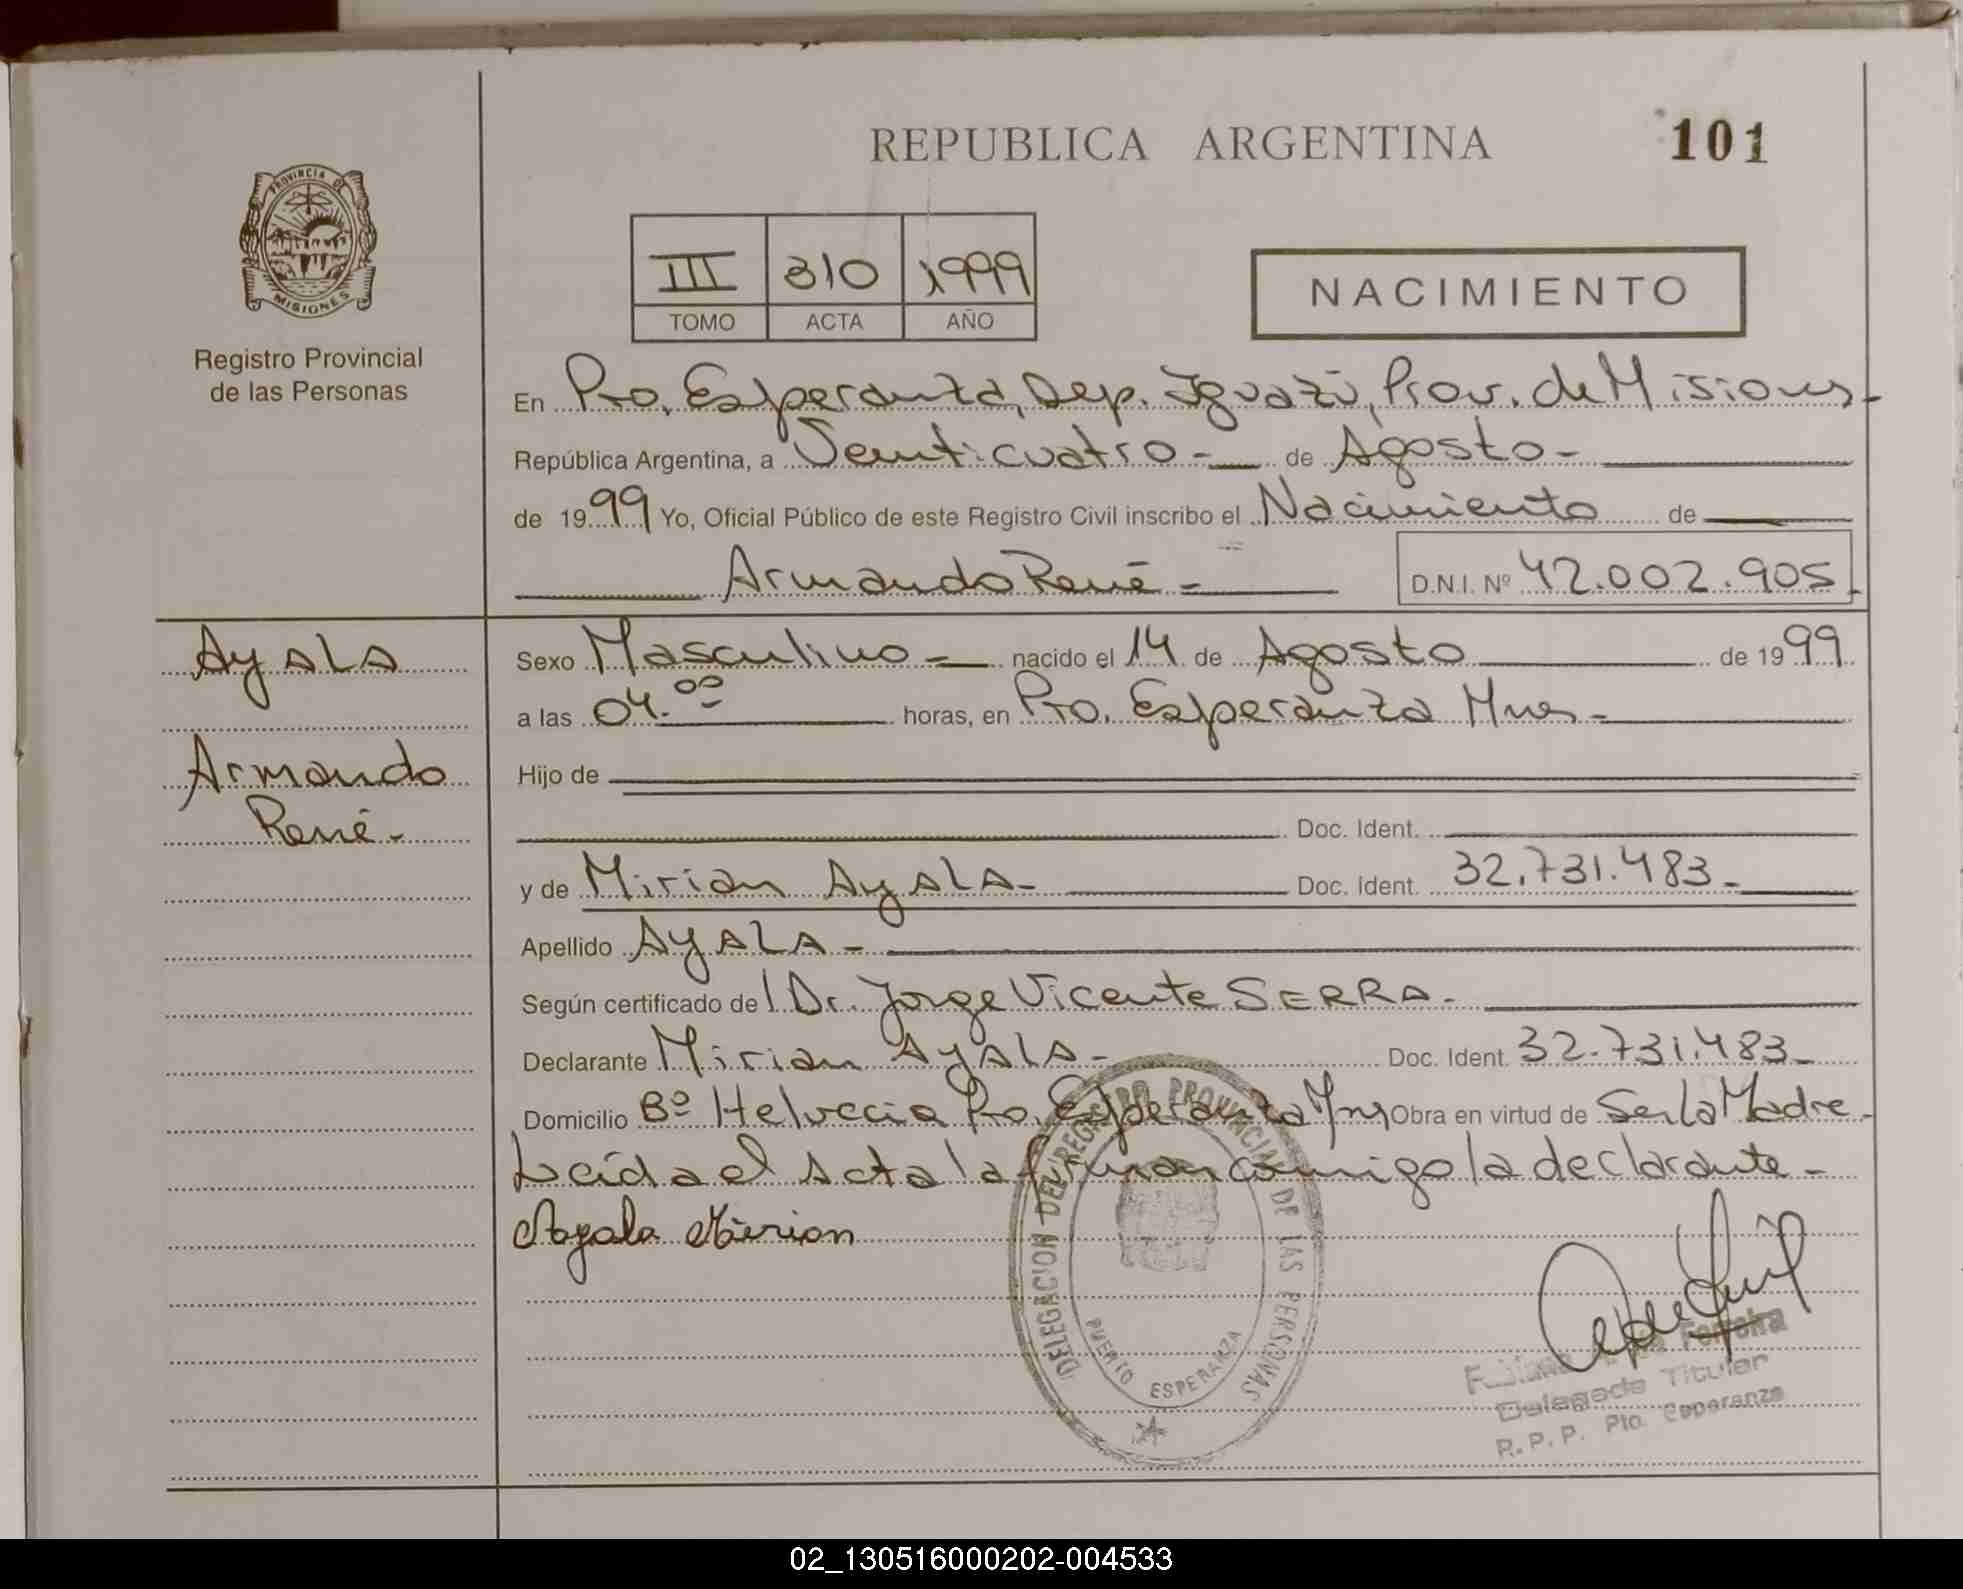 REPUBLICA ARGENTINA
101
PROVINCIA DE
MISIONES
Registro Provincial
de las Personas
III 310 1999
TOMO ACTA AÑO
NACIMIENTO
En Pto. Esperanza, Dep. Iguazú, Prov. de Misiones-
República Argentina, a Veinticuatro - de Agosto -
de 1999 Yo, Oficial Público de este Registro Civil inscribo el Nacimiento de
Armando René - D.N.I. Nº 42.002.905
Ayala
Armando
René-
Sexo Masculino - nacido el 14 de Agosto de 1999
a las 04.00 horas, en Pto. Esperanza Mnes-
Hijo de
Doc. Ident.
y de Mirian Ayala- Doc. Ident. 32.731.483-
Apellido AYALA-
Según certificado del Dr. Jorge Vicente SERRA-
Declarante Mirian Ayala- Doc. Ident. 32.731.483-
Domicilio Bº Helvecia Pto. Esperanza Mns Obra en virtud de Ser la Madre-
Leída el Acta la firman conmigo la declarante-
Ayala Mirian
DELEGACION DEL REGISTRO PROVINCIAL DE LAS PERSONAS
PUERTO ESPERANZA
Ferreira
Delegada Titular
R.P.P. Pto. Esperanza
02_130516000202-004533